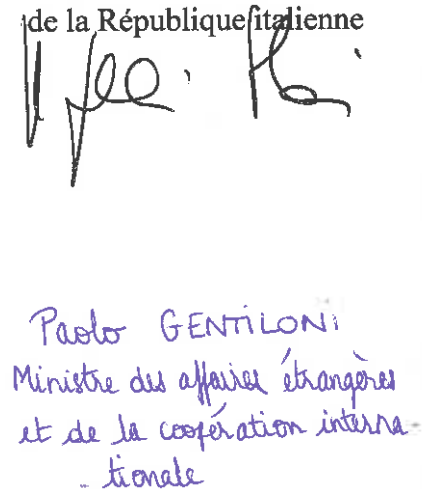 de la République italienne
Paolo GENTILONI
Ministre des affaires étrangères
et de la coopération interna
- tionale